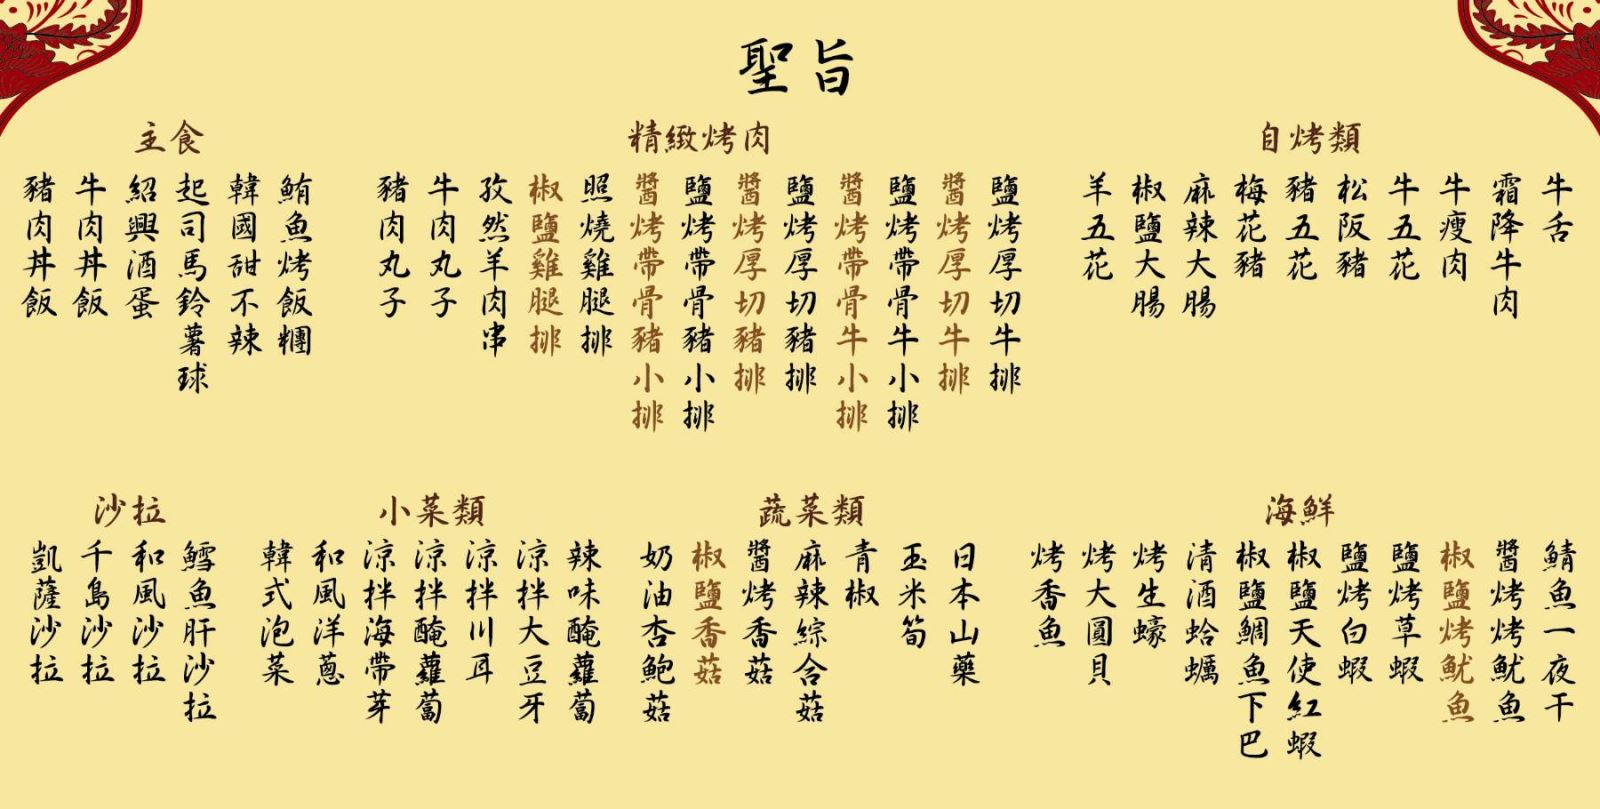 聖旨
自烤類
牛舌
霜降牛肉
牛瘦肉
牛五花
松阪豬
豬五花
梅花豬
麻辣大腸
椒鹽大腸
羊五花
精緻烤肉
鹽烤厚切牛排
醬烤厚切牛排
鹽烤帶骨牛小排
醬烤帶骨牛小排
鹽烤厚切豬排
醬烤厚切豬排
鹽烤帶骨豬小排
醬烤帶骨豬小排
照燒雞腿排
椒鹽雞腿排
孜然羊肉串
牛肉丸子
豬肉丸子
主食
鮪魚烤飯糰
韓國甜不辣
起司馬鈴薯球
紹興酒蛋
牛肉丼飯
豬肉丼飯
海鮮
鯖魚一夜干
醬烤烤魷魚
椒鹽烤魷魚
鹽烤草蝦
鹽烤白蝦
椒鹽天使紅蝦
椒鹽鯛魚下巴
清酒蛤蠣
烤生蠔
烤大圓貝
烤香魚
蔬菜類
日本山藥
玉米筍
青椒
麻辣綜合菇
醬烤香菇
椒鹽香菇
奶油杏鮑菇
小菜類
辣味醃蘿蔔
涼拌大豆牙
涼拌川耳
涼拌醃蘿蔔
涼拌海帶芽
和風洋蔥
韓式泡菜
沙拉
鱈魚肝沙拉
和風沙拉
千島沙拉
凱薩沙拉